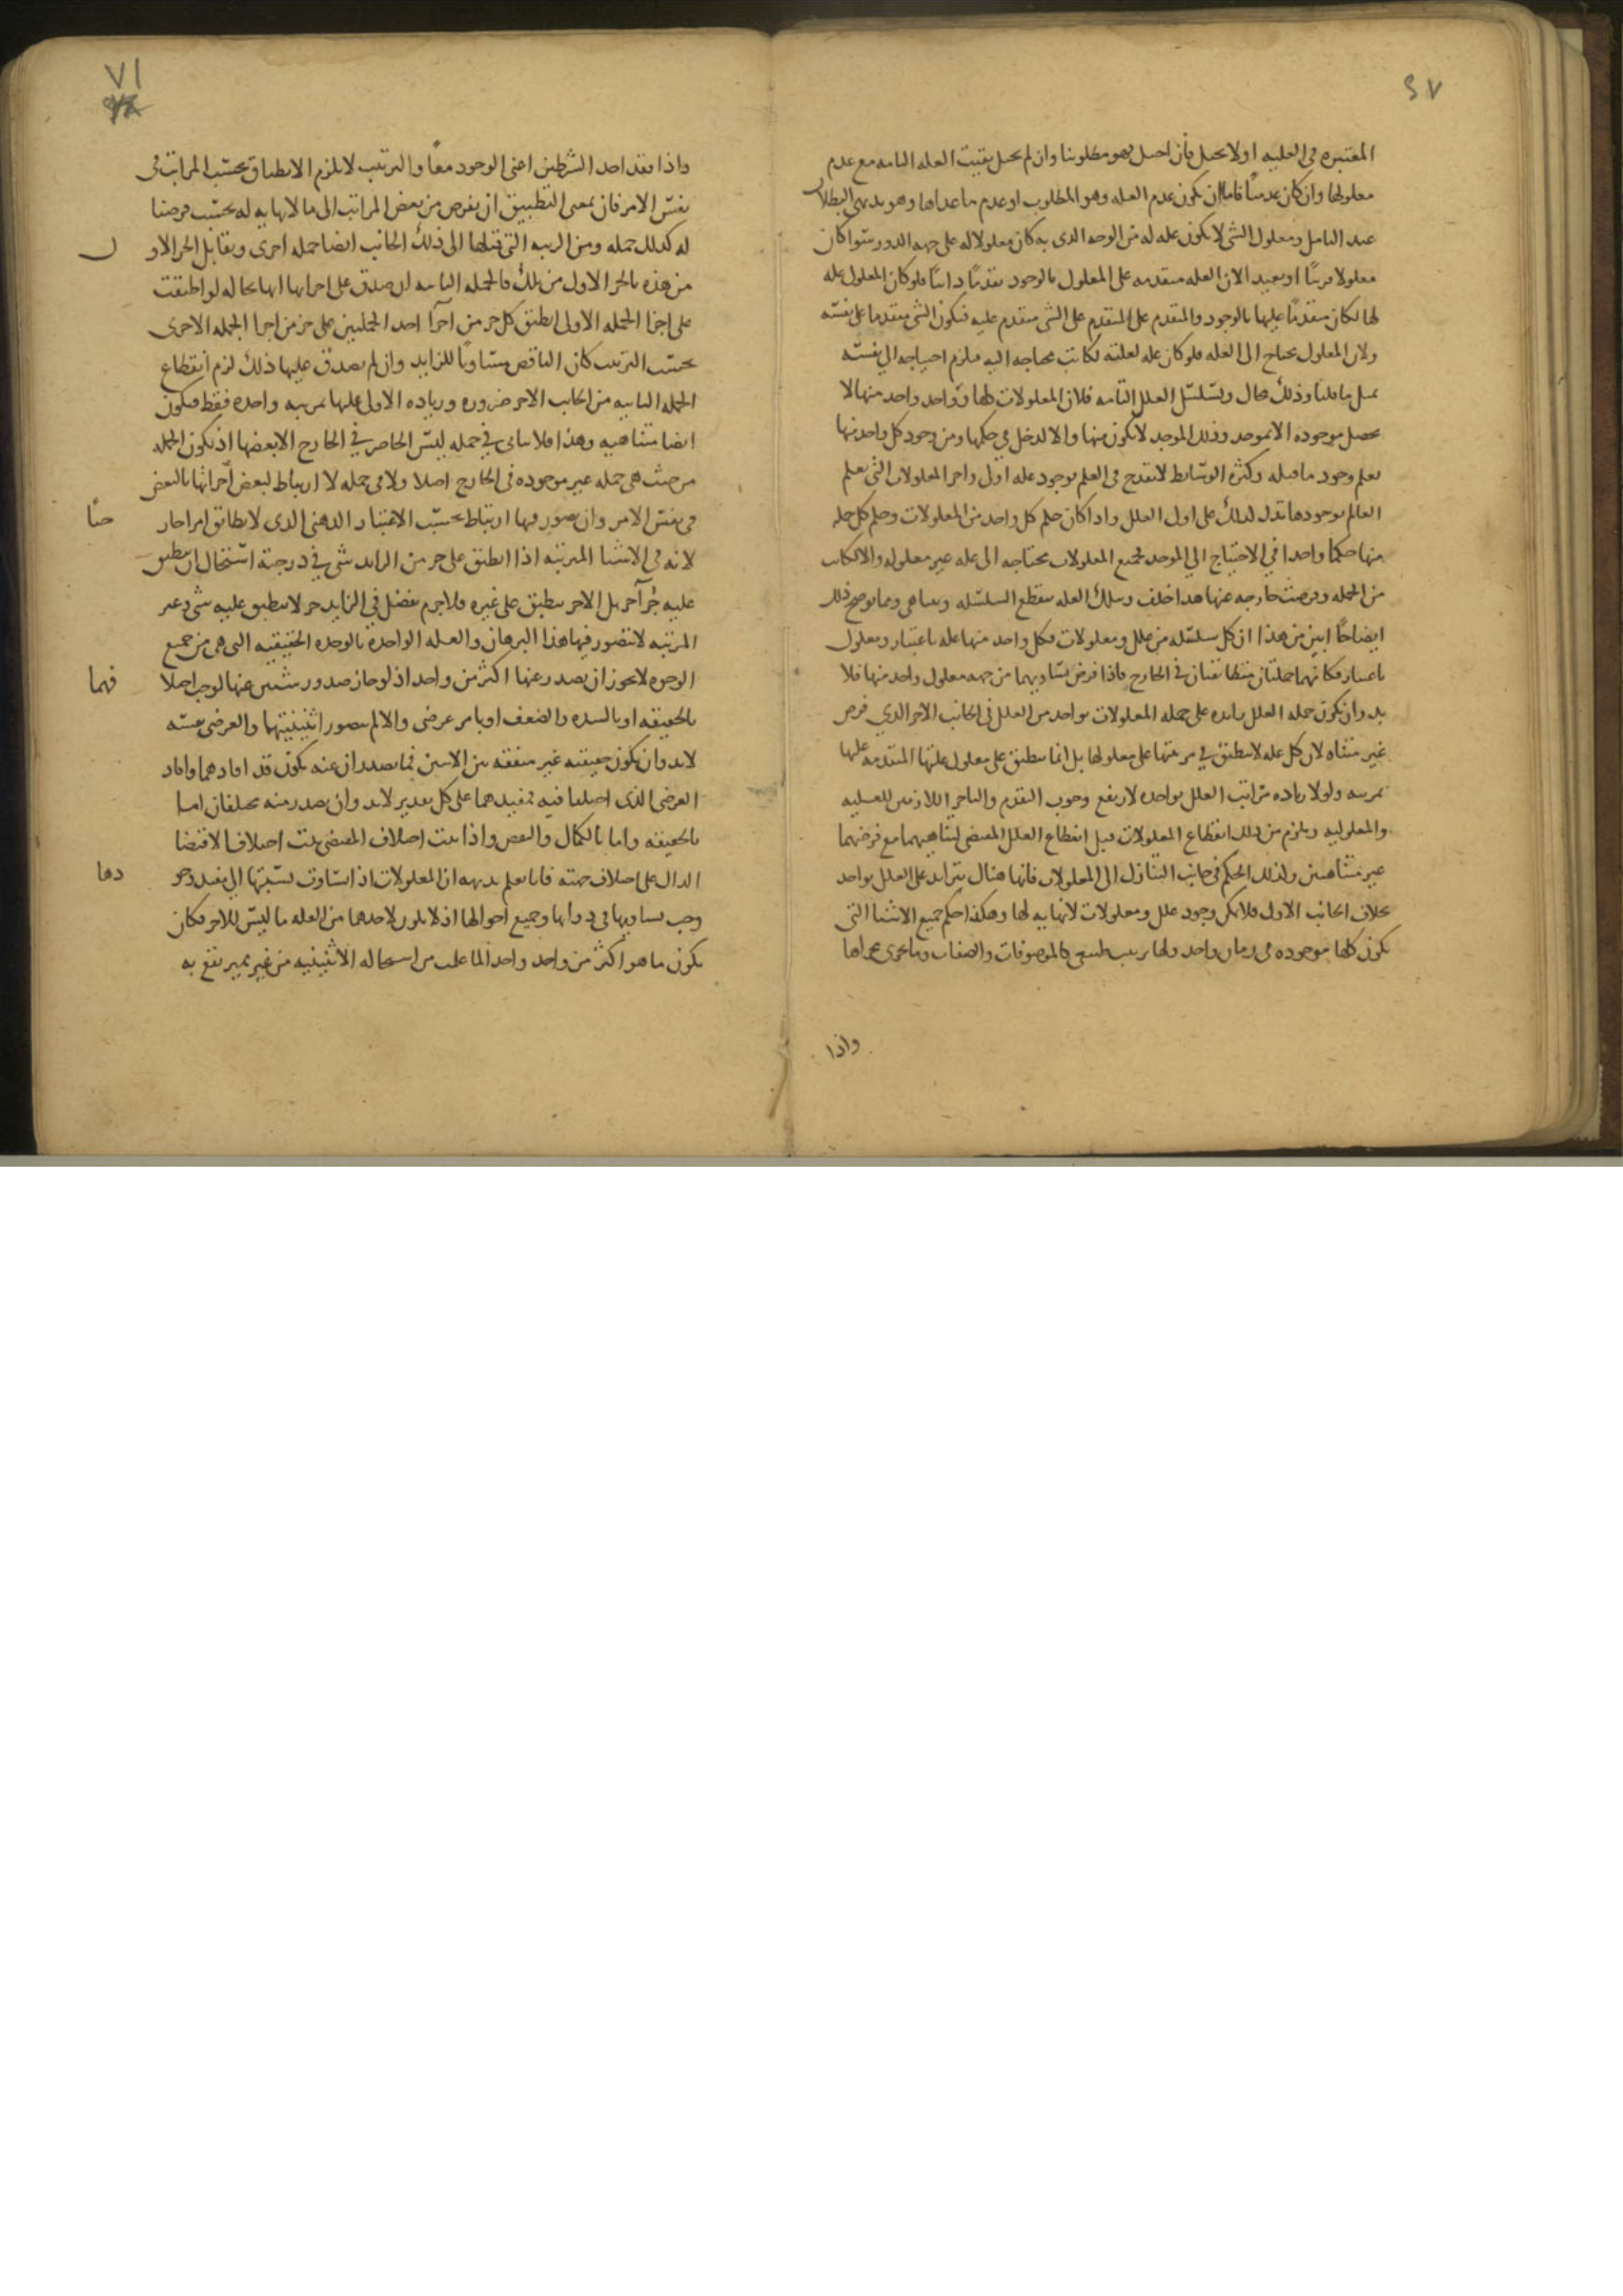 ٧١
٤٧
المعتبره فى العليه اولا يحيل فان احيل فهو مطلوبنا وان لم يحل بقيت العله التامه مع عدم
معلولها وان كان عدميًا فاما ان يكون عدم العله وهو المطلوب او عدم ما عداها وهو بديهى البطلان
عند التامل ومعلول الشى لا يكون عله له من الوجه الذى به كان معلولا له على جهه الدور سوا كان
معلولا قريبًا او بعيدا لان العله متقدمه على المعلول بالوجود تقدمًا ذاتيًا فلو كان المعلول عله
لها لكان متقدمًا عليها بالوجود والمتقدم على المتقدم على الشى متقدم عليه فيكون الشى متقدما على نفسه
ولان المعلول يحتاج الى العله فلو كان عله لعلته لكانت محتاجه اليه فيلزم احتياجه الى نفسه
بمثل ما قلنا وذلك محال وتسلسل العلل التامه فلان المعلولات كلها وواحد واحد منها لا
يحصل موجوده الا بموجد وذلك الموجد لا يكون منها والا لدخل فى حكمها ومن وجود كل واحد منها
يعلم وجود ما قبله وكثره الوسايط لا تقدح فى العلم بوجود عله اول واخر المعلولات التى يعلم
العالم بوجودها تدل لذلك على اول العلل واذا كان حكم كل واحد من المعلولات وحكم كل جمله
منها حكما واحدا فى الاحتياج الى الموجد فجميع المعلولات محتاجه الى عله غير معلوله والا لكانت
من الجمله وفرضت خارجه عنها هذا خلف وبتلك العله تنقطع السلسله وتتناهى ومما يوضح ذلك
ايضاحًا ابين من هذا ان كل سلسله من علل ومعلولات فكل واحد منها عله باعتبار ومعلول
باعتبار فكانهما جملتان متطابقتان فى الخارج فاذا فرض تساويهما من جهه معلول واحد منها فلا
بد وان يكون جمله العلل زايده على جمله المعلولات بواحد من العلل فى الجانب الاخر الذي فرض
غير متناه لان كل عله لا تنطبق في مرتبتها على معلولها بل انما تنطبق على معلول علتها المتقدمه عليها
بمرتبه ولولا زياده مراتب العلل بواحده لارتفع وجوب التقدم والتاخر اللازمين للعليه
والمعلوليه ويلزم من ذلك انقطاع المعلولات قبل انقطاع العلل المقتضى لتناهيهما مع فرضهما
غير متناهيين ولذلك الحكم فى جانب التنازل الى المعلولات فانها هناك تتزايد على العلل بواحد
بخلاف الجانب الاول فلا يمكن وجود علل ومعلولات لا نهايه لها وهكذا حكم جميع الاشيا التى
يكون كلها موجوده فى زمان واحد ولها ترتيب طبيعى كالموصوفات والصفات وما يجرى مجراها
واذا
واذا فقد احد الشرطين اعنى الوجود معًا والترتيب لا يلزم الانطباق بحسب المراتب فى
نفس الامر فان معنى التطبيق ان يفرض من بعض المراتب الى ما لا نهايه له بحسب فرضنا
له كذلك جمله ومن الرتبه التى تتلوها الى ذلك الجانب ايضا جمله اخرى ويقابل الجز الاول
من هذه بالجز الاول من تلك فالجمله الثانيه ان صدق على اجزايها انها بحاله لو اطبقت
على اجزا الجمله الاولى انطبق كل جز من اجزآ احد الجملتين على جز من اجزا الجمله الاخرى
بحسب الترتيب كان الناقص مساويًا للزايد وان لم يصدق عليها ذلك لزم انقطاع
الجمله الثانيه من الجانب الاخر ضروره وزياده الاولى عليها بمرتبه واحده فقط فيكون
ايضا متناهيه وهذا فلا يتاتى في جمله ليس الحاضر في الخارج الا بعضها اذ يكون الجمله
من حيث هى جمله غير موجوده فى الخارج اصلا ولا فى جمله لا ارتباط لبعض اجزائها بالبعض
فى نفس الامر وان تصور فيها ارتباط بحسب الاعتبار الذهنى الذى لا يطابق امرا خارجيًا
لانه فى الاشيا المترتبه اذا انطبق على جز من الزايد شى في درجته استحال ان ينطبق
عليه جُز آخر بل الاخر ينطبق على غيره فلا جرم يفضل في الزايد جز لا ينطبق عليه شى وغير
المرتبه لا يتصور فيها هذا البرهان والعله الواحده بالوحده الحقيقيه التى هى من جميع
الوجوه لا يجوز ان يصدر عنها اكثر من واحد اذ لو جاز صدور شيئين عنها لوجب اختلافهما
بالحقيقه او بالشده والضعف او بامر عرضى والا لم يتصور اثنينيتهما والعرضى نفسه
لا بد وان يكون حقيقته غير متفقه بين الاثنين فما يصدران عنه يكون قد افادهما وافاد
العرضى الذى اختلفا فيه فمفيدهما على كل تقدير لا بد وان يصدر منه مختلفان اما
بالحقيقه واما بالكمال والنقص واذا ثبت اختلاف المقتضى ثبت اختلاف الاقتضا
الدال على اختلاف جهته فانا نعلم بديهه ان المعلولات اذا تساوت نسبتها الى مفيد وجودها
وجب تساويها فى ذواتها وجميع احوالها اذ لا يكون لاحدهما من العله ما ليس للاخر فكان
يكون ما هو اكثر من واحد واحدا لما علمت من استحاله الاثنينيه من غير مميز تقع به